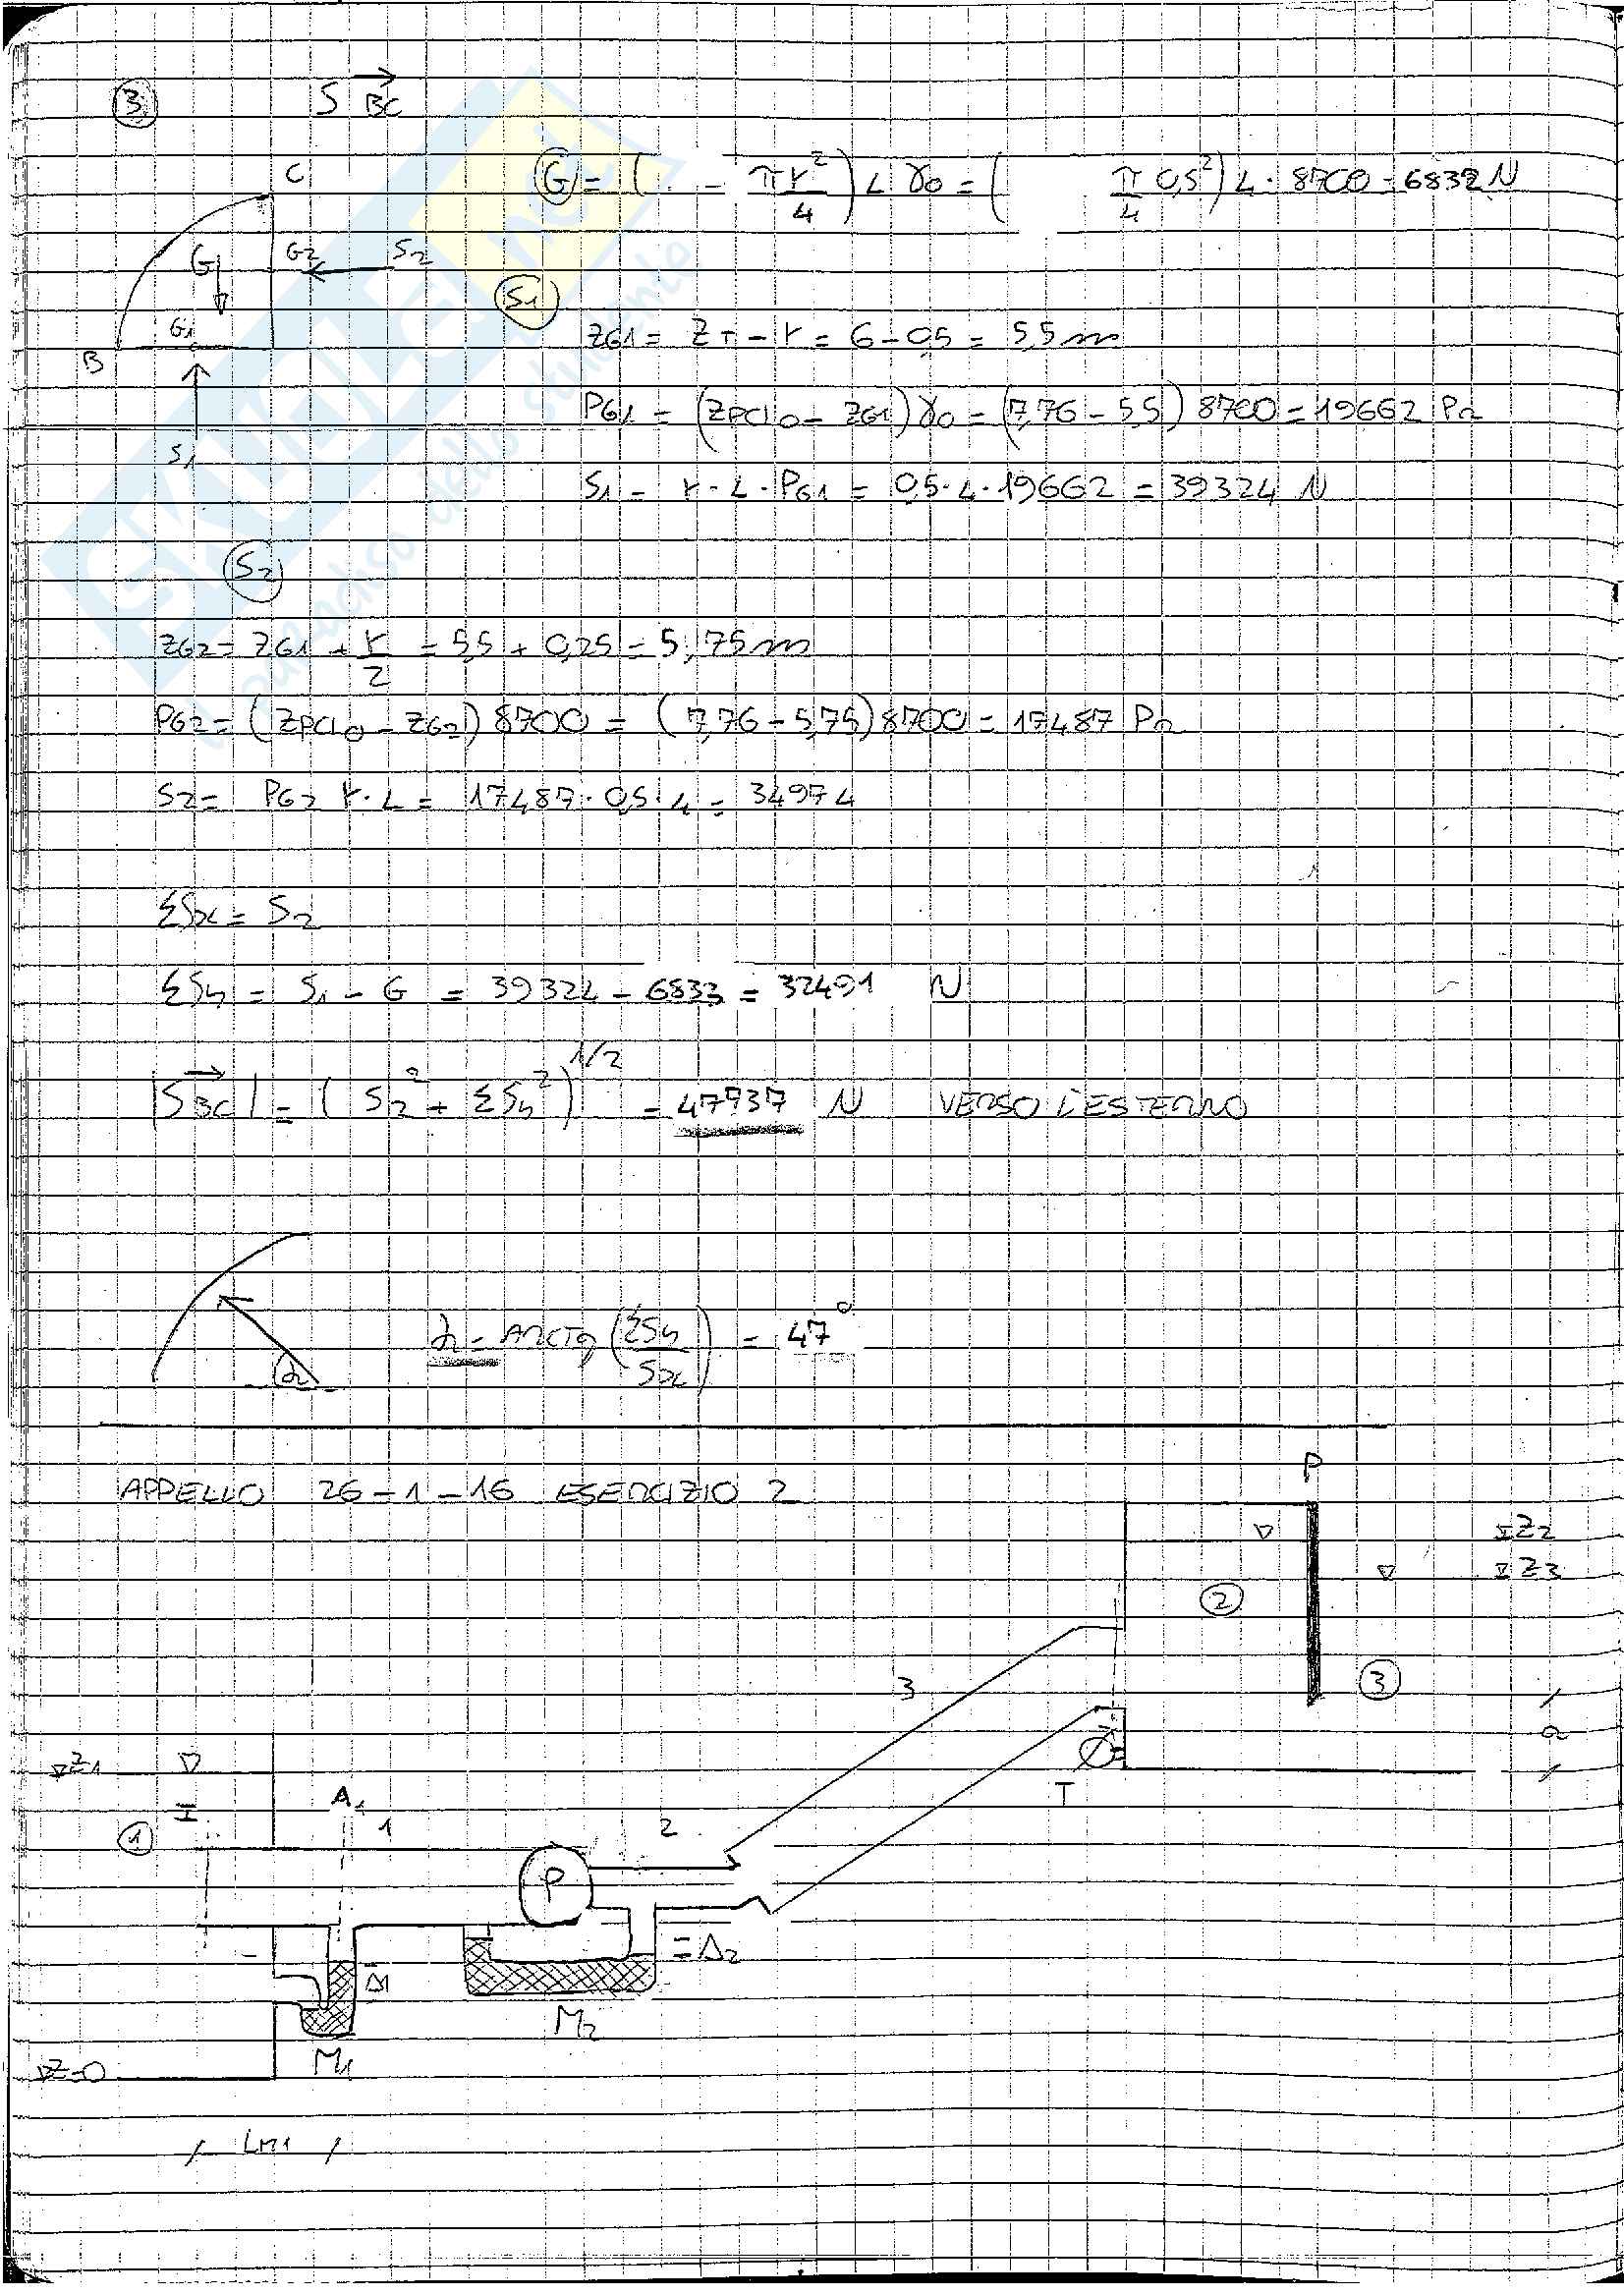 3 S BC
C
G = ( . - πr²/4 ) L γ0 = ( π/4 0,5² ) 4 · 8700 = 6832 N
G G2 S2
S1
G1
B
ZG1 = ZT - r = 6 - 0,5 = 5,5 m
PG1 = (ZPCI0 - ZG1) γ0 = (7,76 - 5,5) 8700 = 19662 Pa
S1
S1 = r · L · PG1 = 0,5 · 4 · 19662 = 39324 N
S2
ZG2 = ZG1 + r/2 = 5,5 + 0,25 = 5,75 m
PG2 = (ZPCI0 - ZG2) 8700 = (7,76 - 5,75) 8700 = 17487 Pa
S2 = PG2 r · L = 17487 · 0,5 · 4 = 34974
ΣSx = S2
ΣSy = S1 - G = 39324 - 6833 = 32491 N
|SBC| = ( S2² + ΣSy² )^1/2 = 47737 N VERSO L'ESTERNO
α = ARCTG (ΣSy/Sx) = 47°
α
APPELLO 26-1-16 ESERCIZIO 2
P
Z2
Z3
2
3
3
a
Z1
T
A1
1
1
2
P
Δ1
Δ2
M2
M1
Z=0
LM1